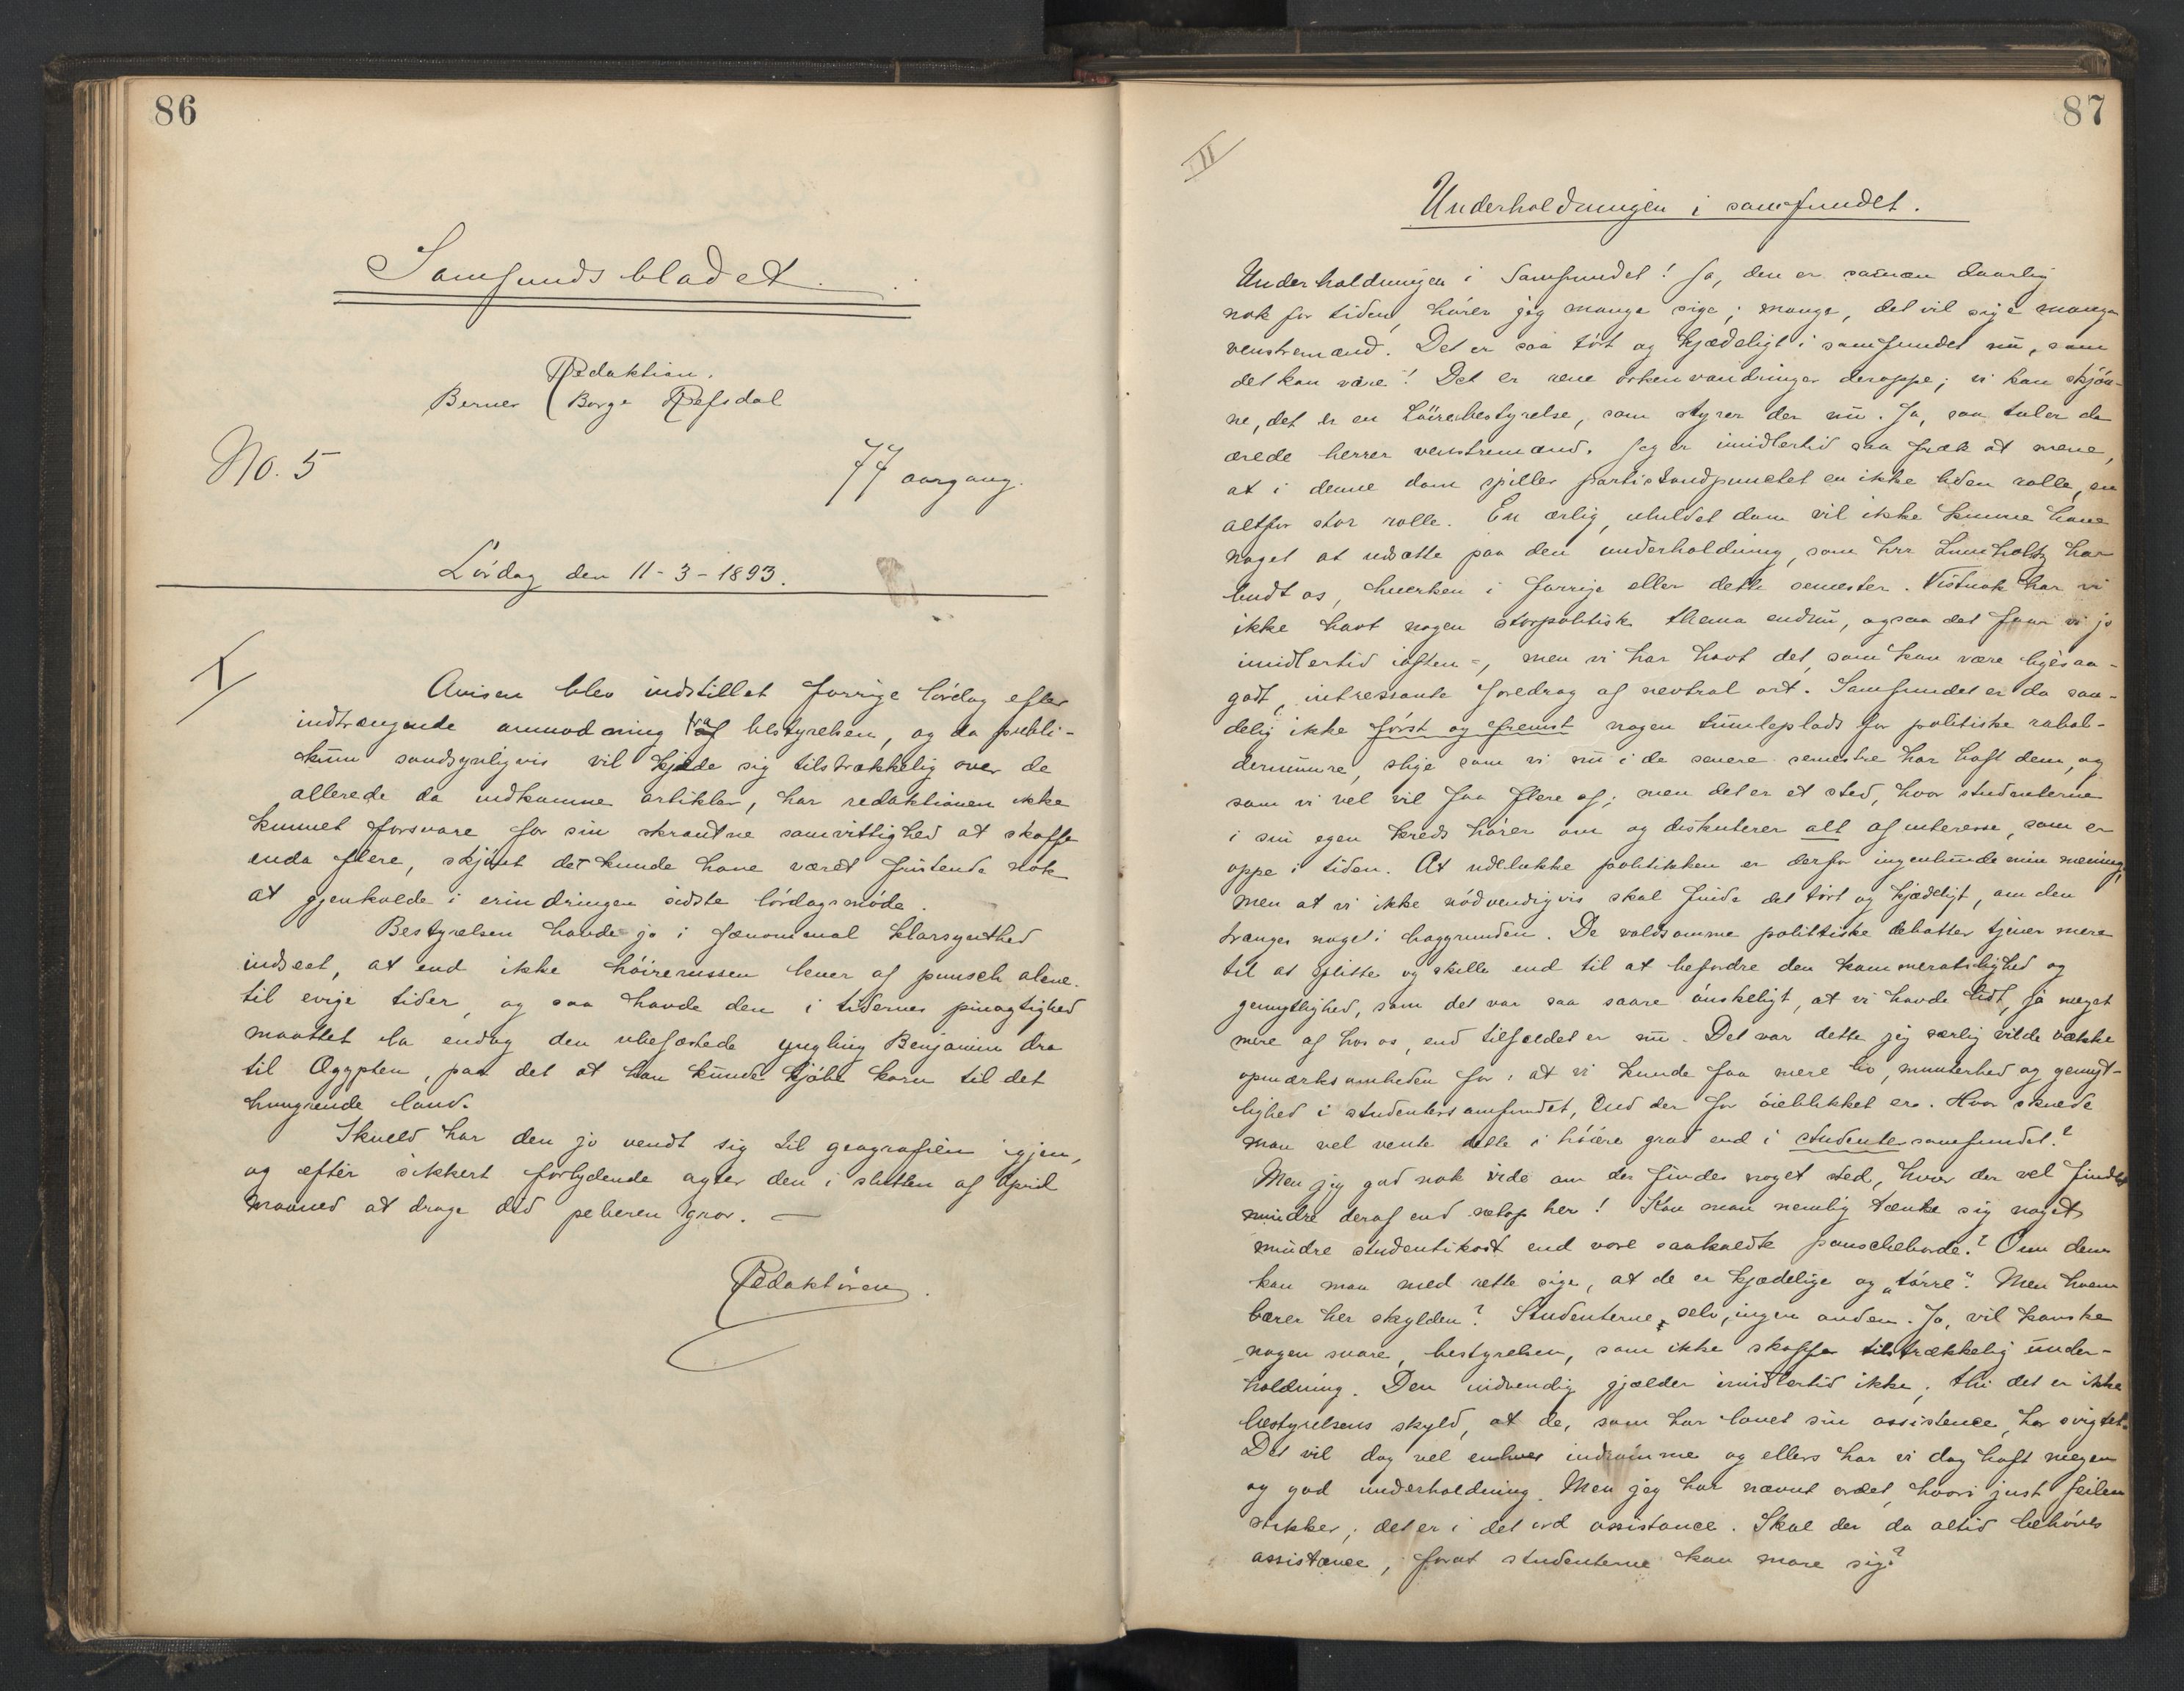 86
Samfundsbladet.
Redaktion.
Berner (Borge Refsdal
No. 5
77 aargang.
Lördag den 11-3-1893.
I
Avisen blev indstillet forrige lördag efter
indtrængende anmodning fra bestyrelsen, og da publi-
kum sandsynligvis vil kjede sig tilstrækkelig over de
allerede da indkomne artikler, har redaktionen ikke
kunnet forsvare for sin skrantne samvittighed at skaffe
enda flere, skjönt det kunde have været fristende nok
at gjenkalde i erindringen sidste lördagsmöde.
Bestyrelsen havde jo i fænomenal klarsynthed
indseet, at end ikke höirerussen lever af punsch alene
til evige tider, og saa havde den i tidernes pinagtighed
maattet la endog den ubefæstede yngling Benjamin dra
til Ægypten, paa det at han kunde kjöbe korn til det
hungrende land.
Ikveld har den jo vendt sig til geografien igjen,
og efter sikkert forlydende agter den i slutten af April
maaned at drage did peberen gror. —
Redaktören.
87
II
Underholdningen i samfundet.
Underholdningen i Samfundet! Ja, den er saamæn daarlig
nok for tiden, hörer jeg mange sige; mange, det vil sige mange
venstremænd. Det er saa tört og kjedeligt i samfundet nu, som
det kan være! Det er rene örkenvandringer deroppe; vi kan skjön-
ne, det er en höirebestyrelse, som styrer der nu. Ja, saa taler de
ærede herrer venstremænd. Jeg er imidlertid saa fræk at mene,
at i denne dom spiller partistandpunctet en ikke liden rolle, en
altfor stor rolle. En ærlig, uhildet dom vil ikke kunne have
noget at udsætte paa den underholdning, som hrr Lumholtz har
budt os, hverken i forrige eller dette semester. Vistnok har vi
ikke havt nogen storpolitisk thema endnu, ogsaa det faar vi jo
imidlertid iaften -, men vi har havt det, som kan være ligesaa-
godt, intressante foredrag af nevtral art. Samfundet er da san-
delig ikke först og fremst nogen tumleplads for politiske rabal-
dermöre, slige som vi nu i de senere semestre har haft dem, og
som vi vel vil faa flere af; men det er et sted, hvor studenterne
i sin egen kreds hörer om og diskuterer alt af interesse, som er
oppe i tiden. At udelukke politikken er derfor ingenlunde min mening,
men at vi ikke nödvendigvis skal finde det tört og kjedeligt, om den
trænges noget i baggrunden. De voldsomme politiske debatter tjener mere
til at splitte og skille end til at befordre den kammeratslighed og
gemytlighed, som det var saa saare önskeligt, at vi havde lidt, ja meget
mere af hos os, end tilfældet er nu. Det var dette jeg særlig vilde vække
opmærksomheden for: at vi kunde faa mere liv, munterhed og gemyt-
lighed i studentersamfundet, end der for öieblikket er. Hvor skulde
man vel vente dette i höiere grad end i studentersamfundet?
Men jeg gad nok vide om der findes noget sted, hvor der vel findes
mindre deraf end netop her! Kan man nemlig tænke sig noget
mindre studentikost end vore saakaldte punscheborde? Om dem
kan man med rette sige, at de er kjedelige og "törre". Men hvem
bærer her skylden? Studenterne selv, ingen anden. Ja, vil kanske
nogen svare, bestyrelsen, som ikke skaffer tilstrækkelig under-
holdning. Den indvending gjælder imidlertid ikke; thi det er ikke
bestyrelsens skyld, at de, som har lovet sin assistence, har svigtet.
Det vil dog vel enhver indrömme og ellers har vi dog haft megen
og god underholdning. Men jeg har nævnt ordet, hvori just feilen
stikker; det er i det ord assistance. Skal der da altid behöves
assistance, forat studenterne kan more sig?